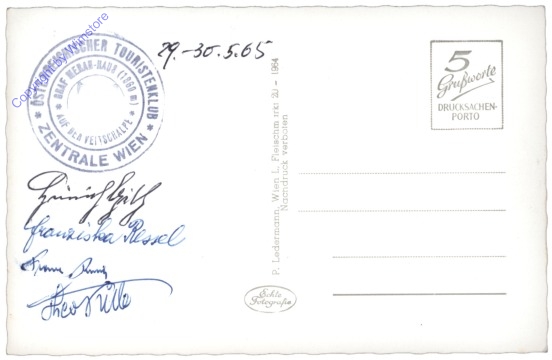 ÖSTERREICHISCHER TOURISTENKLUB
* ZENTRALE WIEN *
GRAF MERAN-HAUS (1860 m)
* AUF DER VEITSCHALPE *
Copyright by Winstore
29.-30.5.65
franziska Ressel
Theo
P. Ledermann, Wien I., Fleischm.rkt 20 - 1964
Nachdruck verboten
5
Grußworte
DRUCKSACHEN-
PORTO
Echte
Fotografie